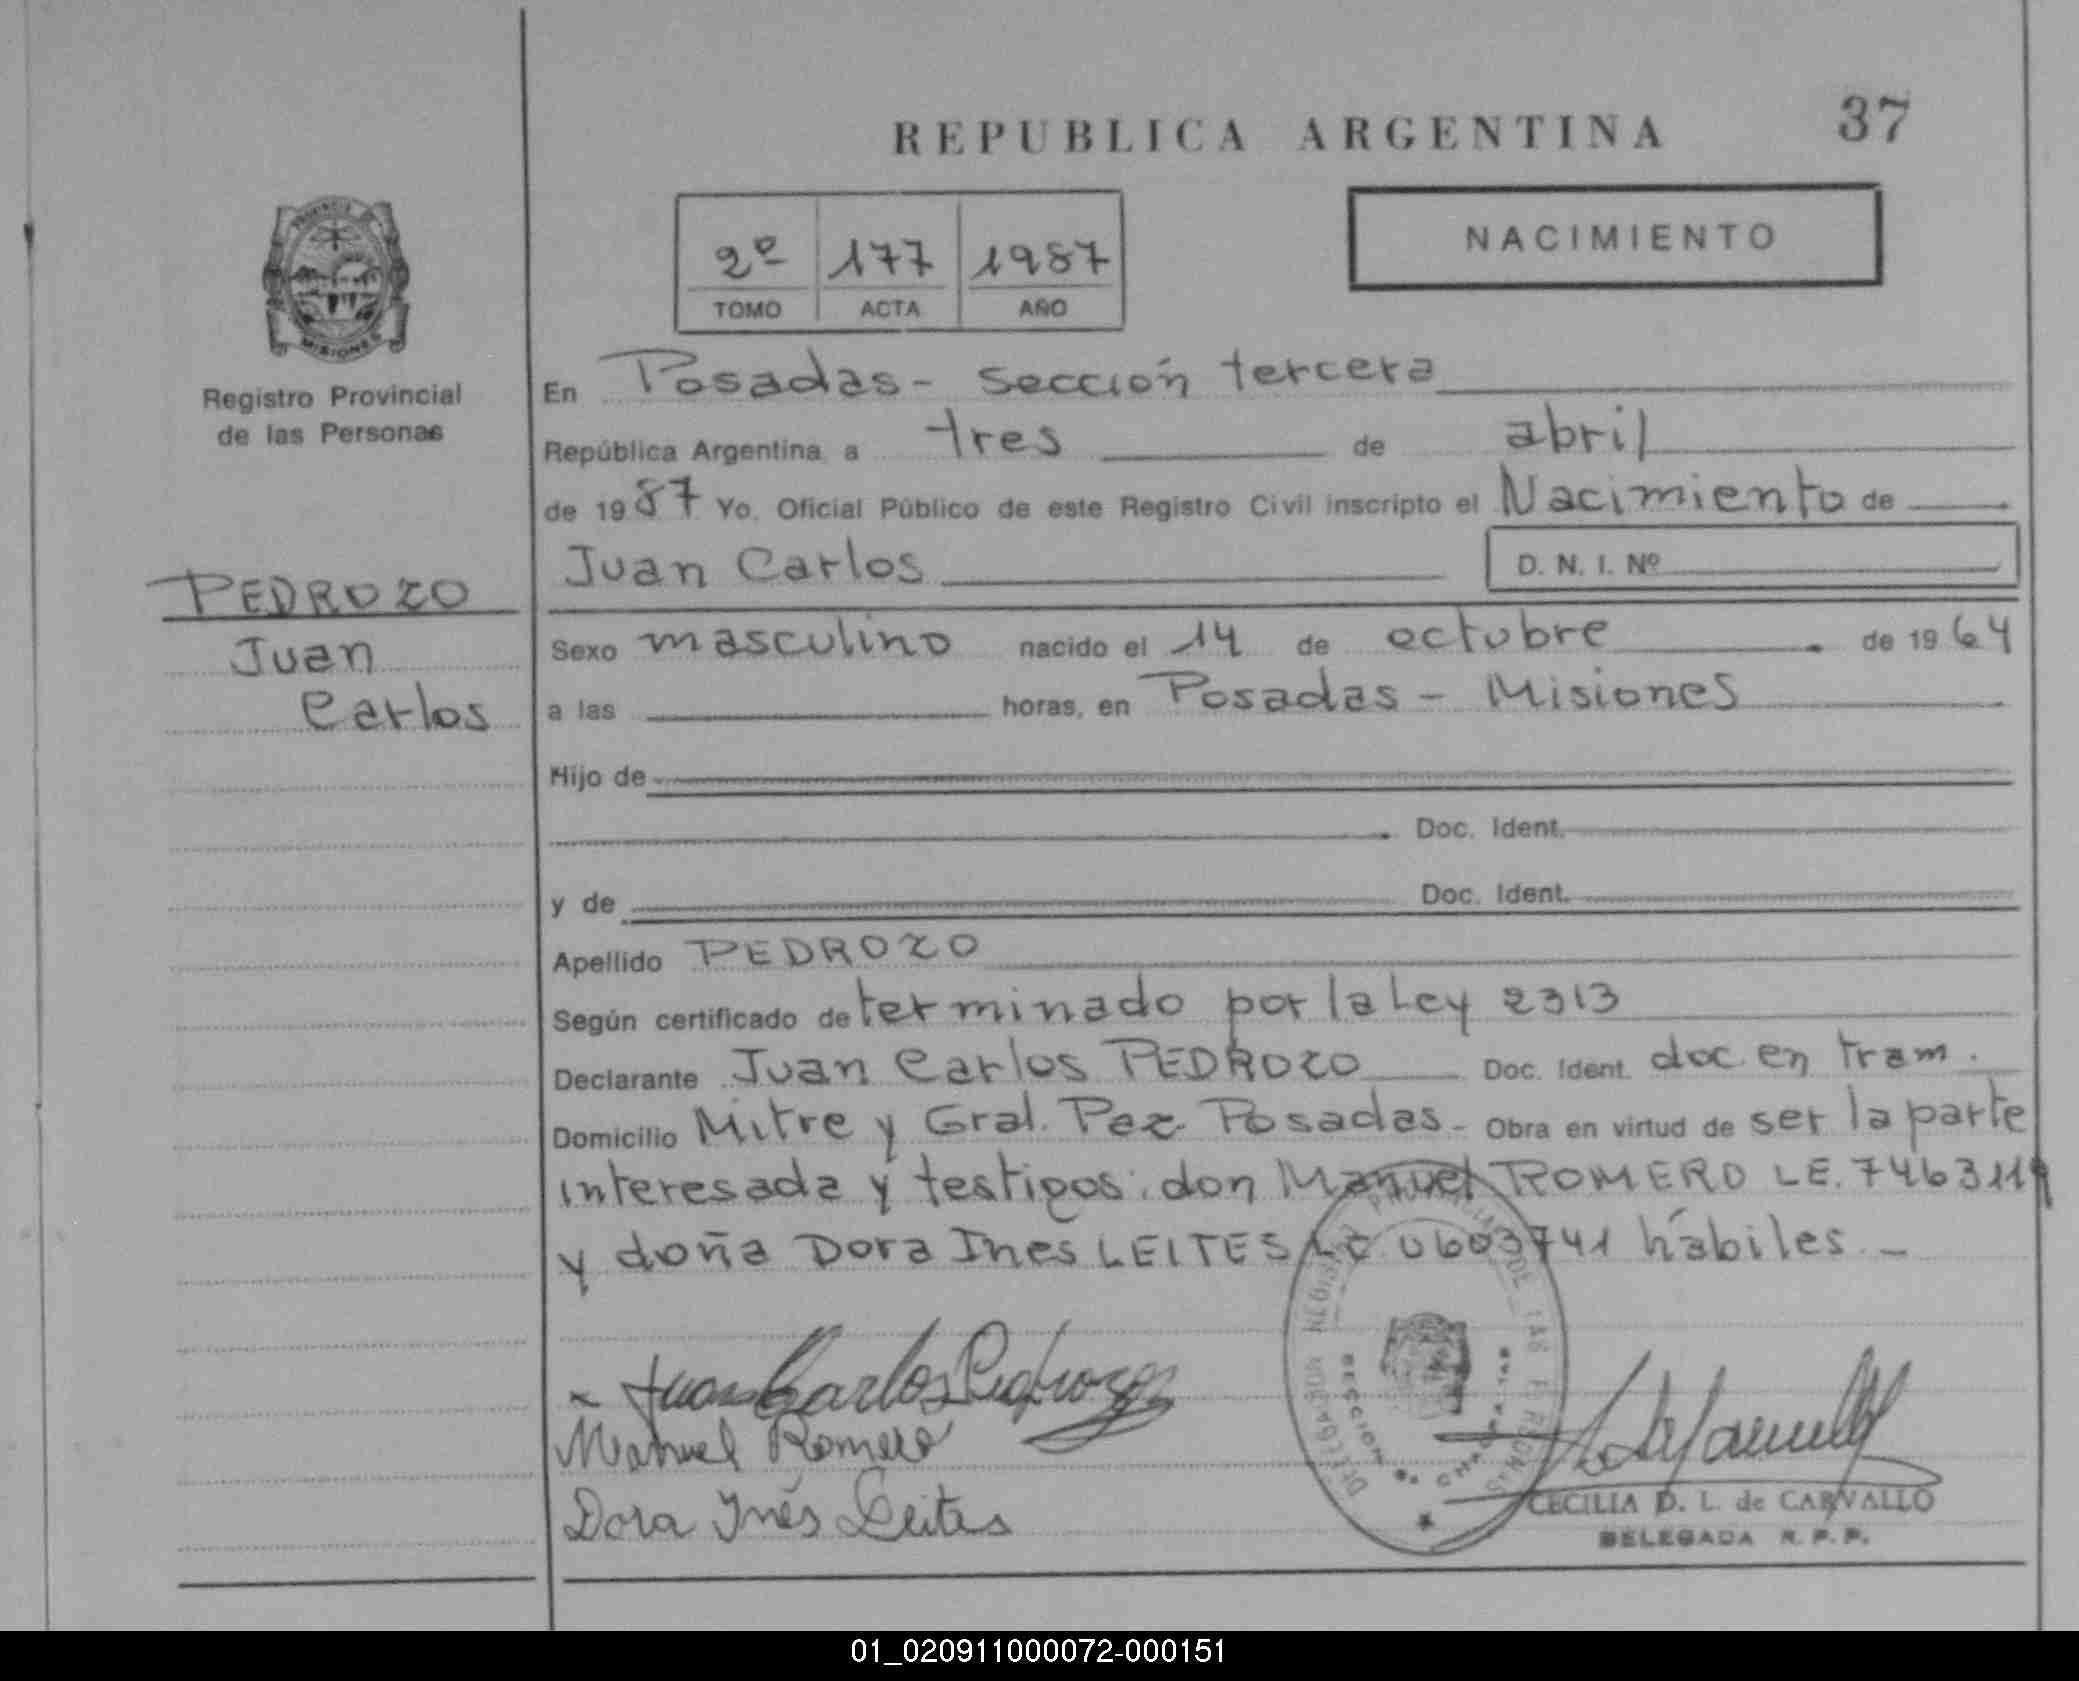 REPUBLICA ARGENTINA
37
NACIMIENTO
2º 177 1987
TOMO ACTA AÑO
PROVINCIA
MISIONES
Registro Provincial
de las Personas
PEDROZO
Juan
Carlos
En Posadas - sección tercera
República Argentina, a tres de abril
de 1987 Yo. Oficial Público de este Registro Civil inscripto el Nacimiento de
Juan Carlos D. N. I. Nº
Sexo masculino nacido el 14 de octubre de 1964
a las horas, en Posadas - Misiones
Hijo de
Doc. Ident.
y de Doc. Ident.
Apellido PEDROZO
Según certificado determinado por la Ley 2313
Declarante Juan Carlos PEDROZO Doc. Ident. doc. en tram.
Domicilio Mitre y Gral. Paz. Posadas - Obra en virtud de ser la parte
interesada y testigos: don Manuel ROMERO LE. 7463119
y doña Dora Ines LEITES LC 0603741 hábiles. -
Juan Carlos Pedrozo
Manuel Romero
Dora Inés Leites
CECILIA D. L. de CARVALLO
DELEGADA R. P. P.
01_020911000072-000151